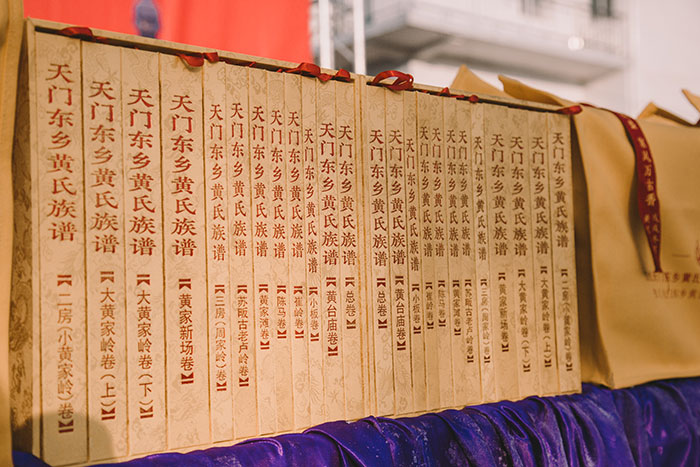 天门东乡黄氏族谱【二房(小黄家岭)卷】
天门东乡黄氏族谱【大黄家岭卷(上)】
天门东乡黄氏族谱【大黄家岭卷(下)】
天门东乡黄氏族谱【黄家新场卷】
天门东乡黄氏族谱【三房(周家岭)卷】
天门东乡黄氏族谱【苏畈古老卢岭卷】
天门东乡黄氏族谱【黄家滩卷】
天门东乡黄氏族谱【陈马卷】
天门东乡黄氏族谱【崔岭卷】
天门东乡黄氏族谱【小板卷】
天门东乡黄氏族谱【黄台庙卷】
天门东乡黄氏族谱【总卷】
天门东乡黄氏族谱【总卷】
天门东乡黄氏族谱【黄台庙卷】
天门东乡黄氏族谱【小板卷】
天门东乡黄氏族谱【崔岭卷】
天门东乡黄氏族谱【陈马卷】
天门东乡黄氏族谱【黄家滩卷】
天门东乡黄氏族谱【苏畈古老卢岭卷】
天门东乡黄氏族谱【三房(周家岭)卷】
天门东乡黄氏族谱【黄家新场卷】
天门东乡黄氏族谱【大黄家岭卷(下)】
天门东乡黄氏族谱【大黄家岭卷(上)】
天门东乡黄氏族谱【二房(小黄家岭)卷】
家风万古香